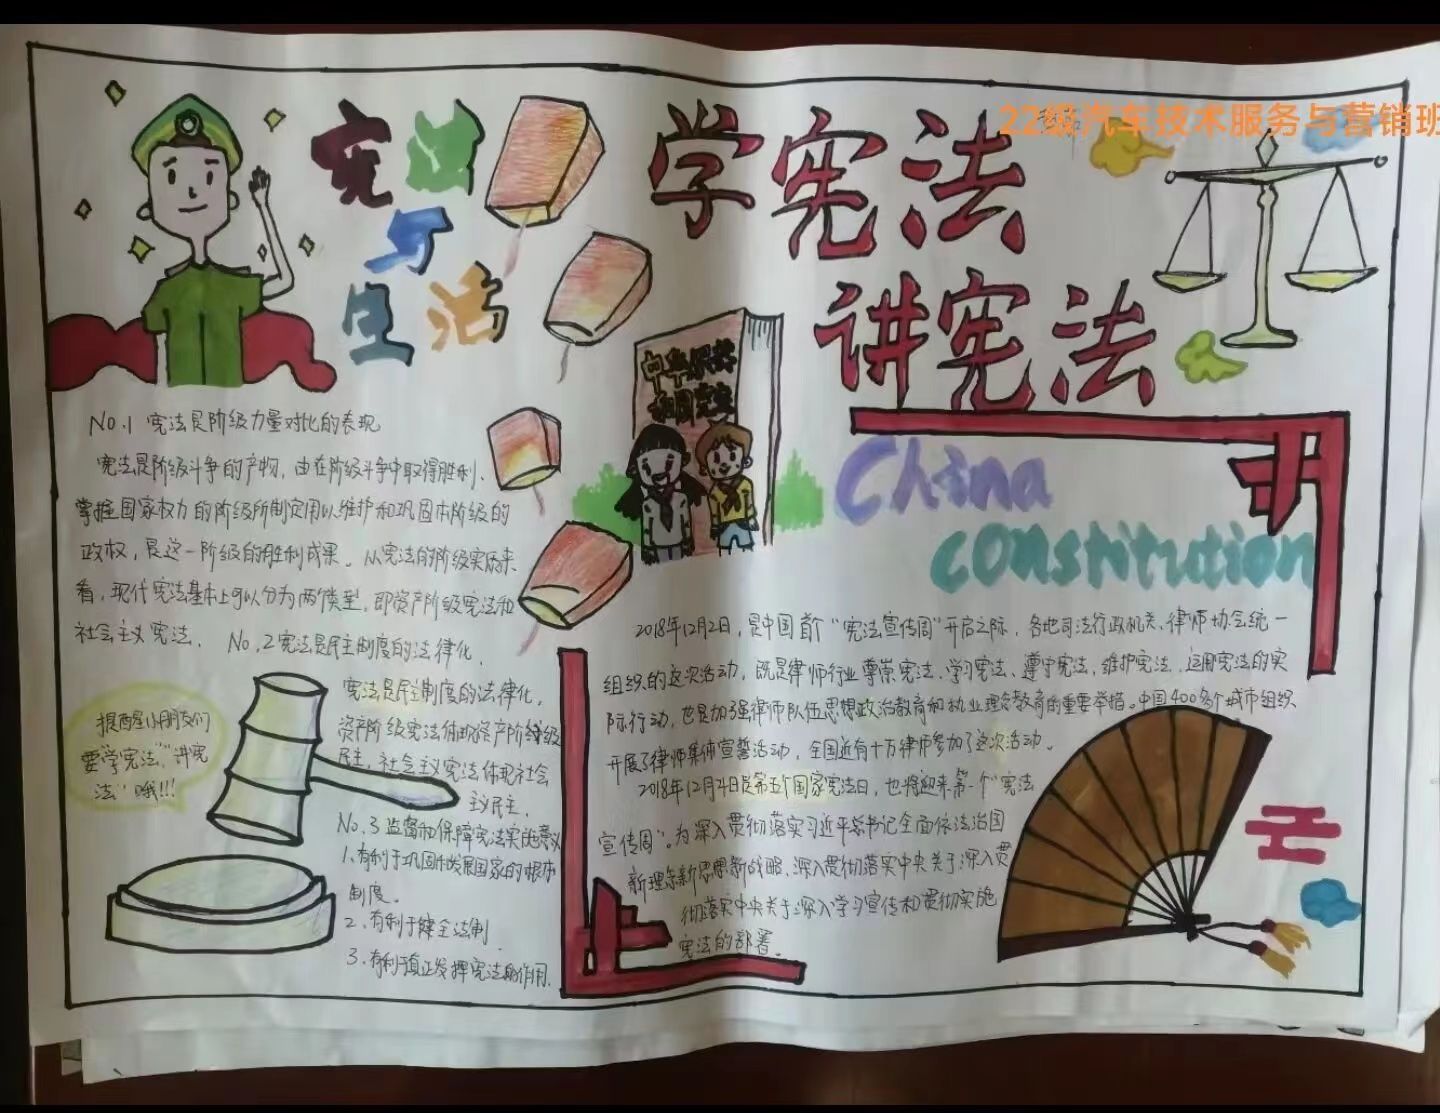 22级汽车技术服务与营销班
宪法
与
生活
学宪法
讲宪法
中华人民共
和国宪法
China
constitution
No.1 宪法是阶级力量对比的表现
宪法是阶级斗争的产物，由在阶级斗争中取得胜利、
掌握国家权力的阶级所制定用以维护和巩固本阶级的
政权，是这一阶级的胜利成果。从宪法的阶级实质来
看，现代宪法基本上可以分为两个类型，即资产阶级宪法和
社会主义宪法． No.2 宪法是民主制度的法律化．
宪法是民主制度的法律化，
资产阶级宪法体现资产阶级
民主，社会主义宪法体现社会
主义民主．
提醒小朋友们
要“学宪法”“讲宪
法”哦!!!
No.3 监督和保障宪法实施意义
1、有利于巩固和发展国家的根本
制度。
2、有利于健全法制．
3、有利于真正发挥宪法的作用．
2018年12月2日，是中国首个“宪法宣传周”开启之际，各地司法行政机关、律师协会统一
组织的这次活动，既是律师行业尊崇宪法、学习宪法、遵守宪法、维护宪法、运用宪法的实
际行动，也是加强律师队伍思想政治教育和执业理念教育的重要举措。中国400多个城市组织
开展了律师集体宣誓活动，全国近有十万律师参加了这次活动。
2018年12月4日是第五个国家宪法日，也将迎来第一个“宪法
宣传周”。为深入贯彻落实习近平总书记全面依法治国
新理念新思想新战略、深入贯彻落实中央关于深入贯
彻落实中央关于深入学习宣传和贯彻实施
宪法的部署。